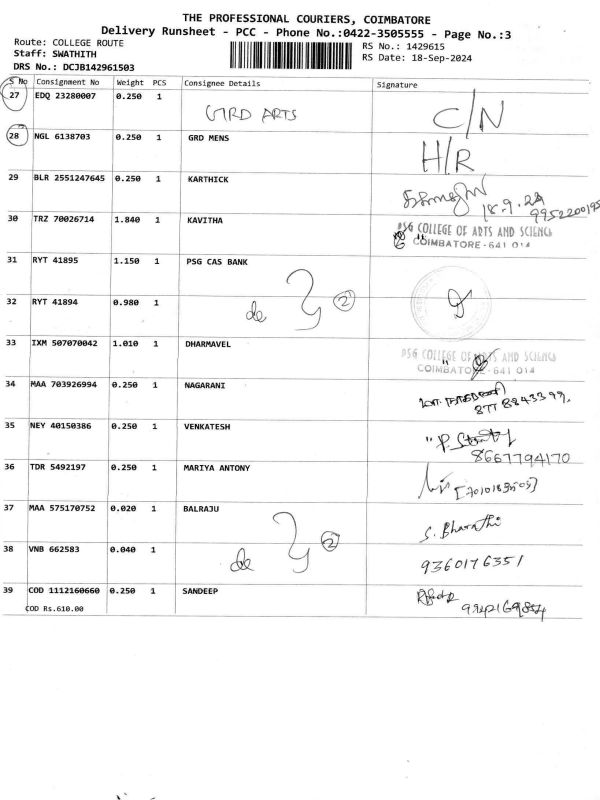 THE PROFESSIONAL COURIERS, COIMBATORE
Delivery Runsheet - PCC - Phone No.:0422-3505555 - Page No.:3
Route: COLLEGE ROUTE
RS No.: 1429615
Staff: SWATHITH
RS Date: 18-Sep-2024
DRS No.: DCJB142961503
S No Consignment No Weight PCS Consignee Details Signature
27 EDQ 23280007 0.250 1 GRD ARTS C/N
28 NGL 6138703 0.250 1 GRD MENS H/R
29 BLR 2551247645 0.250 1 KARTHICK
18.9.24
9952200195
30 TRZ 70026714 1.840 1 KAVITHA PSG COLLEGE OF ARTS AND SCIENCE
COIMBATORE - 641 014
31 RYT 41895 1.150 1 PSG CAS BANK
32 RYT 41894 0.980 1 de 2
33 IXM 507070042 1.010 1 DHARMAVEL PSG COLLEGE OF ARTS AND SCIENCE
COIMBATORE - 641 014
34 MAA 703926994 0.250 1 NAGARANI
877 8843399.
35 NEY 40150386 0.250 1 VENKATESH
8667794170
36 TDR 5492197 0.250 1 MARIYA ANTONY
37 MAA 575170752 0.020 1 BALRAJU S. Bharathi
38 VNB 662583 0.040 1 de 2 9360176351
39 COD 1112160660 0.250 1 SANDEEP
COD Rs.610.00